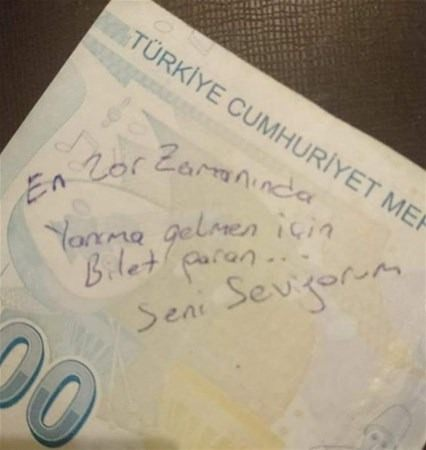 TÜRKİYE CUMHURİYET MER
En Zor Zamanında
Yanıma gelmen için
Bilet paran...
Seni Seviyorum
00